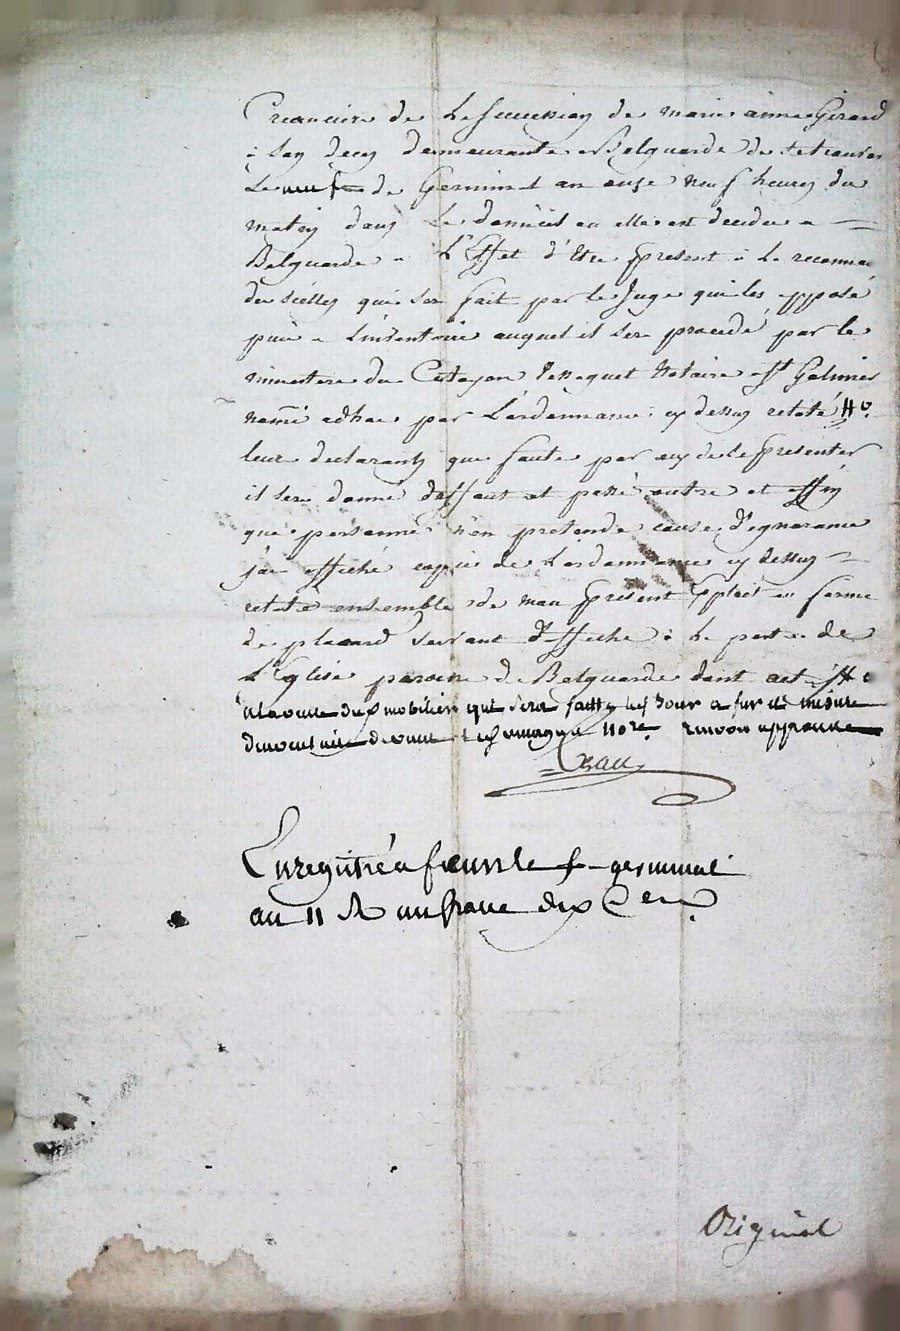 Creancire de La Succession de marie anne Girard
à son deces demeurante a Belguarde de se trouver
Le neuf de Germinal an onze neuf heures du
matin dans Le domicil ou elle est decedee a
Belguarde a L'Effet d'Etre present à La reconnai
des sielles qui ser fait par le Juge qui les apposé
puis a L'inventaire auquel il sera procedé par le
ministere du Citoyen notaire a St Galmier
nommé adhac par L'ordonnance cy dessus relaté
leur declarant que faute par eux de se presenter
il sera donné deffaut et passé outre et affin
que personne n'en pretende cause d'ignorance
j'ai affiché copie de L'ordonnance cy dessus
relaté ensemble de mon present Exploit en forme
de placard servant d'affiche à La porte de
L'Eglise paroisse de Belguarde dont act
a la vente du mobilier qui sera fait les jour a fur et mesure
renvoy approuvé
Enregistré a feurs le germinal
an 11 R un franc dix Cen
Original